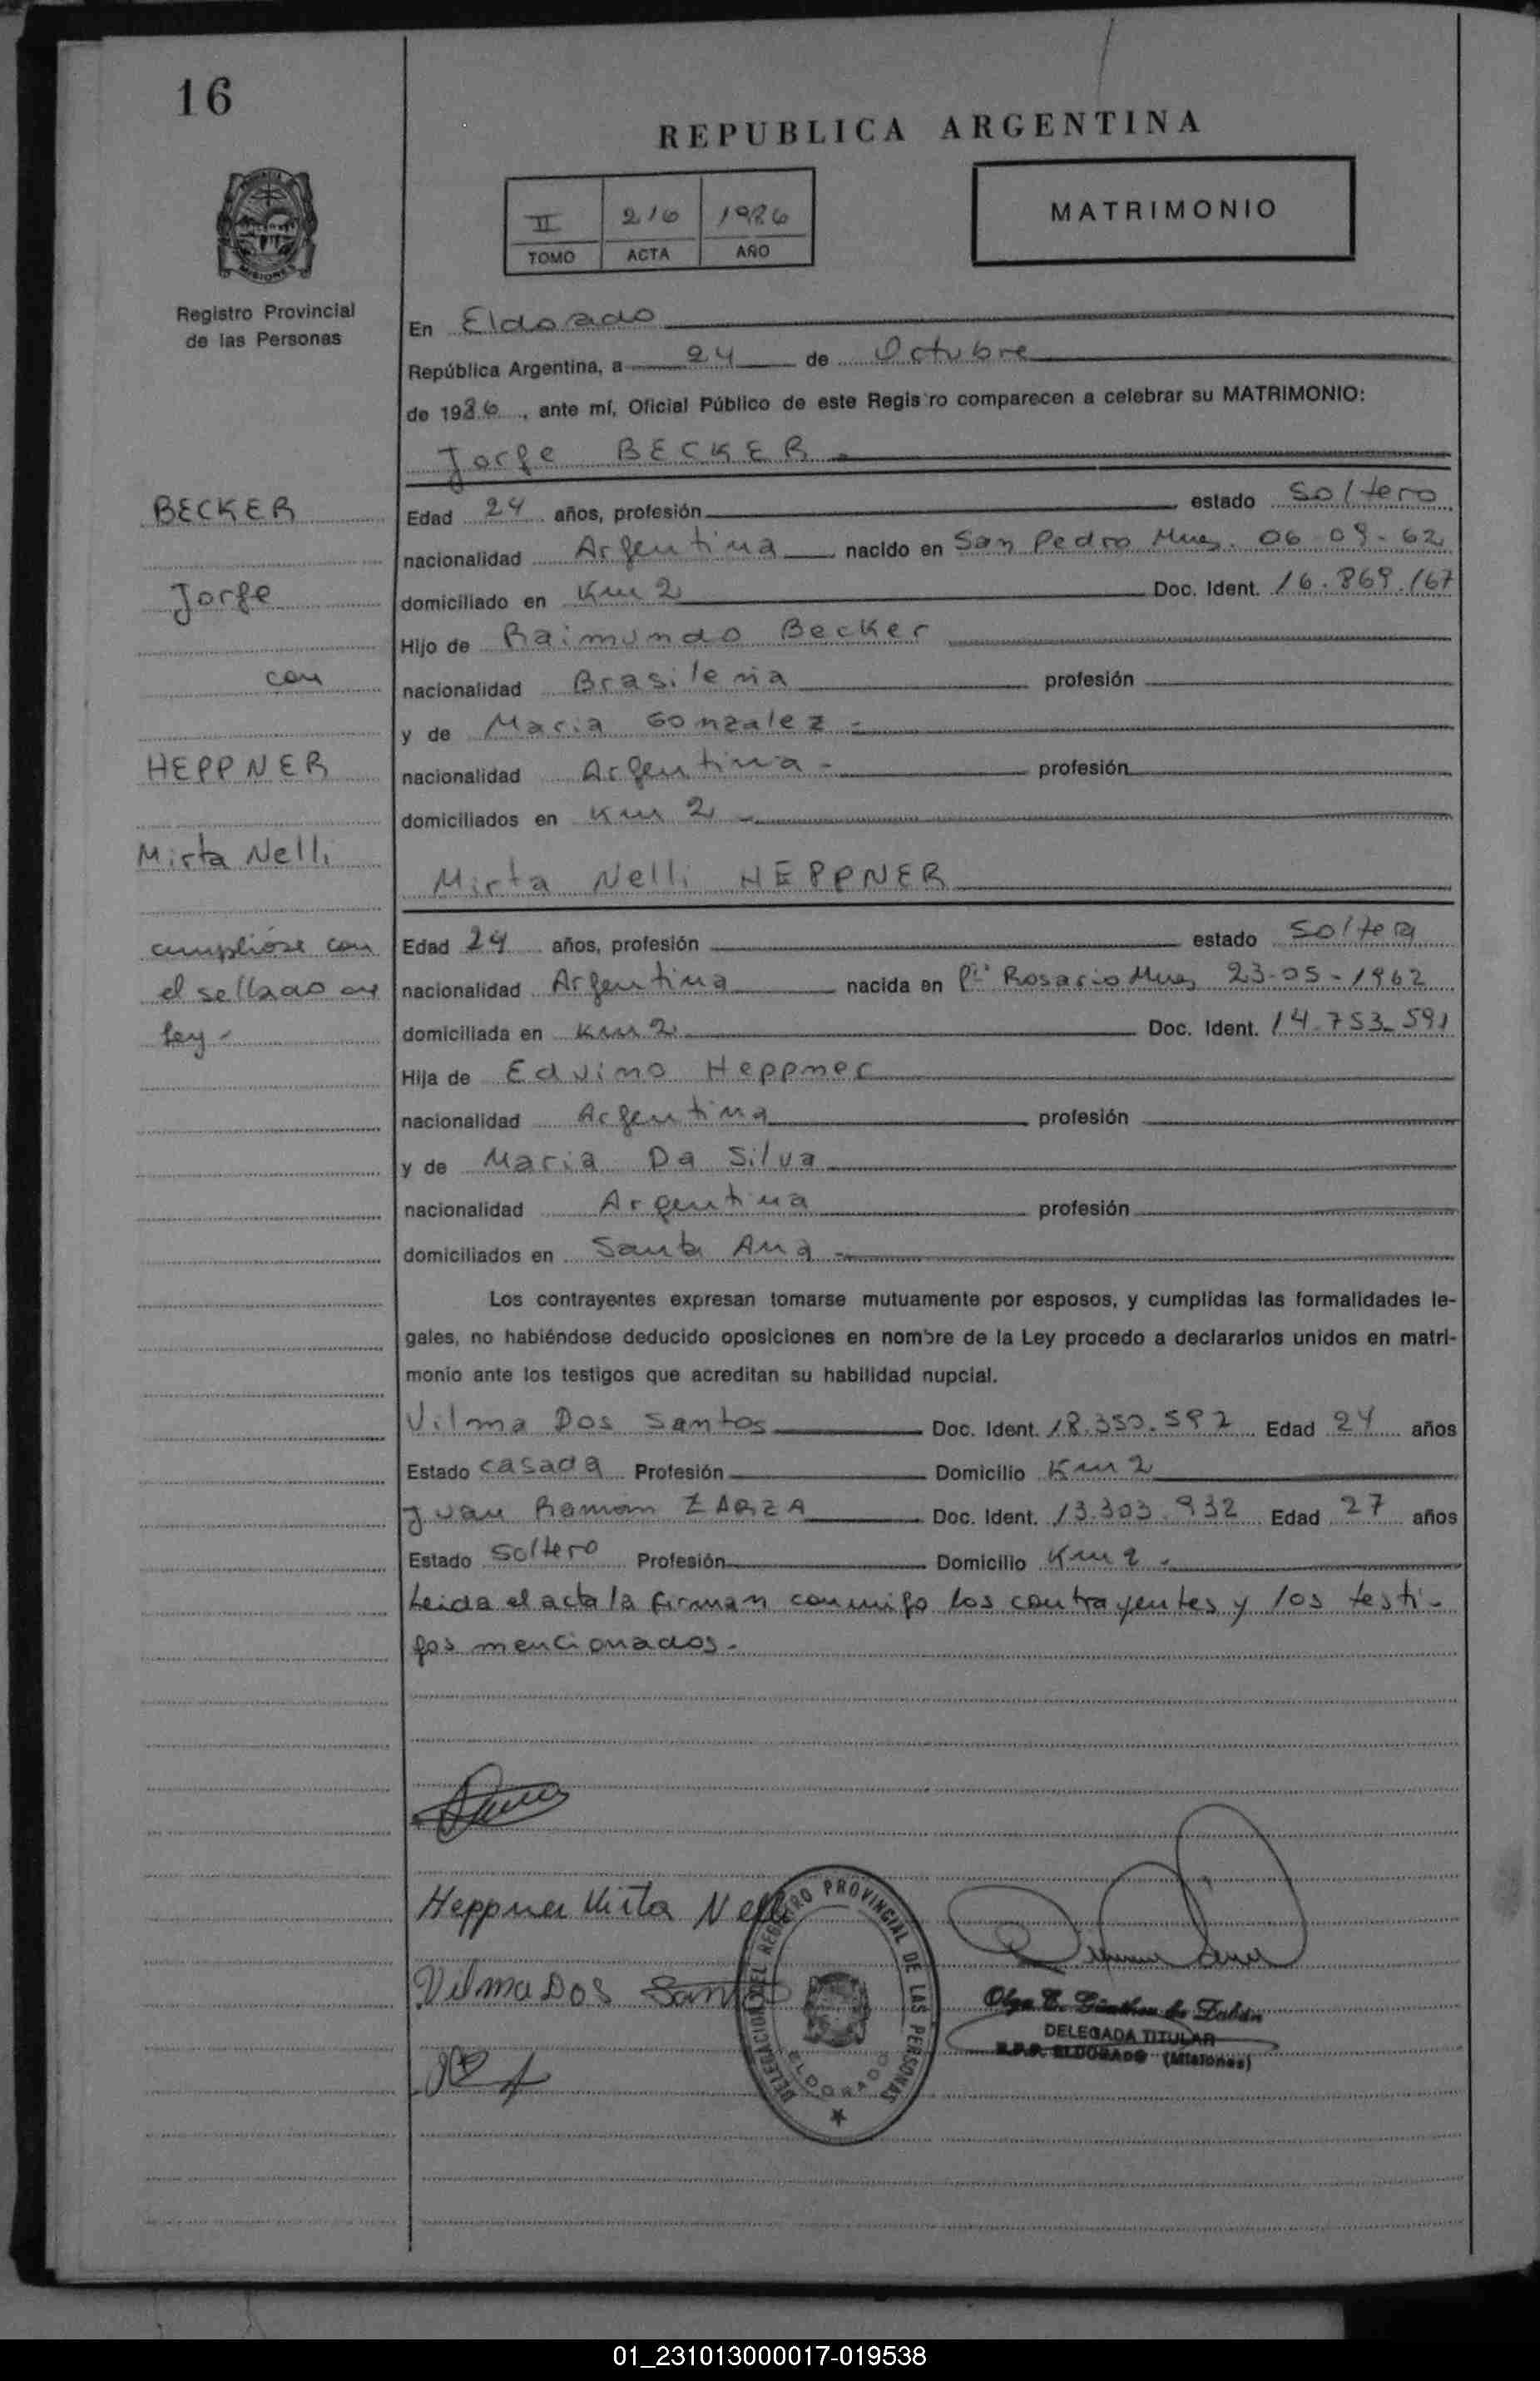 16
REPUBLICA ARGENTINA
II 216 1986
TOMO ACTA AÑO
MATRIMONIO
MISIONES
Registro Provincial
de las Personas
En Eldorado
República Argentina, a 24 de Octubre
de 1986, ante mí, Oficial Público de este Registro comparecen a celebrar su MATRIMONIO:
Jorge BECKER
BECKER
Jorge
con
HEPPNER
Mirta Nelli
cumplióse con
el sellado de
Ley -
Edad 24 años, profesión estado Soltero
nacionalidad Argentina nacido en San Pedro Mnes. 06-09-62
domiciliado en Km 2 Doc. Ident. 16.869.167
Hijo de Raimundo Becker
nacionalidad Brasilena profesión
y de Maria Gonzalez -
nacionalidad Argentina - profesión
domiciliados en Km 2 -
Mirta Nelli HEPPNER
Edad 24 años, profesión estado Soltera
nacionalidad Argentina nacida en Pto Rosario Mnes 23-05-1962
domiciliada en Km 2 Doc. Ident. 14.753.591
Hija de Edvino Heppner
nacionalidad Argentina profesión
y de Maria Da Silva
nacionalidad Argentina profesión
domiciliados en Santa Ana -
Los contrayentes expresan tomarse mutuamente por esposos, y cumplidas las formalidades le-
gales, no habiéndose deducido oposiciones en nombre de la Ley procedo a declararlos unidos en matri-
monio ante los testigos que acreditan su habilidad nupcial.
Vilma Dos Santos Doc. Ident. 18.350.592 Edad 24 años
Estado casada Profesión Domicilio Km 2
Juan Ramon ZARZA Doc. Ident. 13.303.932 Edad 27 años
Estado Soltero Profesión Domicilio Km 2 -
Leida el acta la firman conmigo los contrayentes y los testi-
gos mencionados -
Heppner Mirta Nelli
Vilma Dos Santos
DELEGACION DEL REGISTRO PROVINCIAL DE LAS PERSONAS
ELDORADO
Olga E. Günther de
DELEGADA TITULAR
R.P.P. ELDORADO (Misiones)
01_231013000017-019538